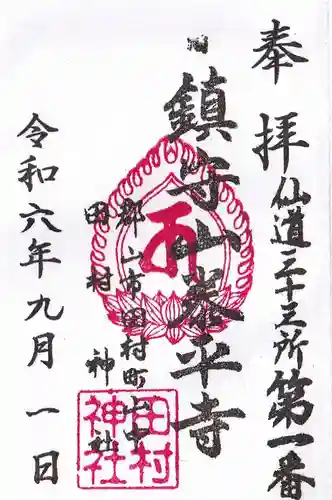 奉拝
仙道三十三所第一番
鎮守山泰平寺
郡山市田村町
田村神社
令和六年九月一日
田村
神社